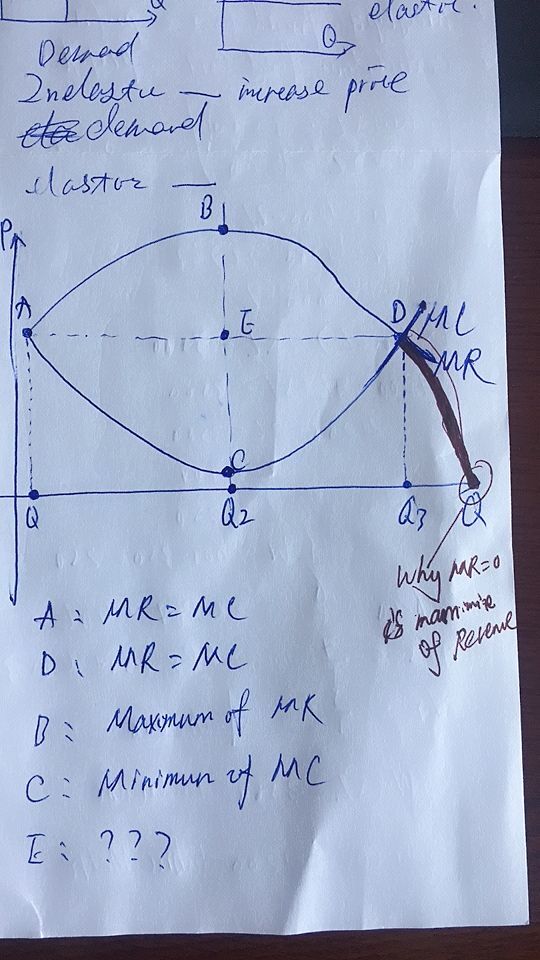 Q
elastic.
Q
Demand
Inelastic — increase price
demand
elastic —
B
P
A
E
D MC
MR
C
Q Q2 Q3 Q
Why MR=0
is maximize
of Revenue
A : MR = MC
D : MR = MC
B : Maximum of MR
C : Minimun of MC
E : ???